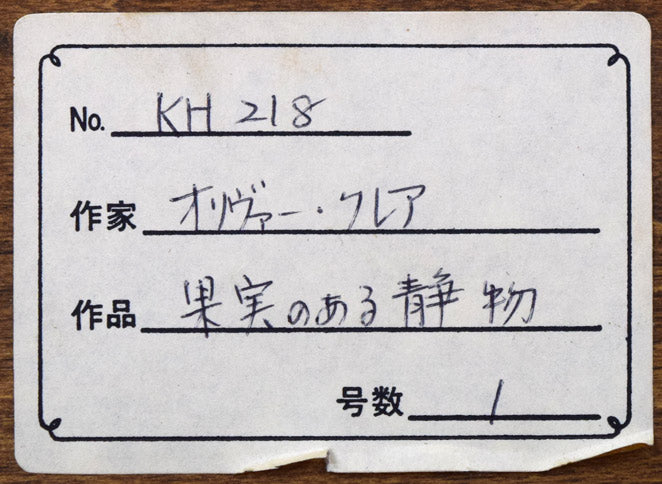 No. KH 218
作家 オリヴァー・クレア
作品 果実のある静物
号数 1